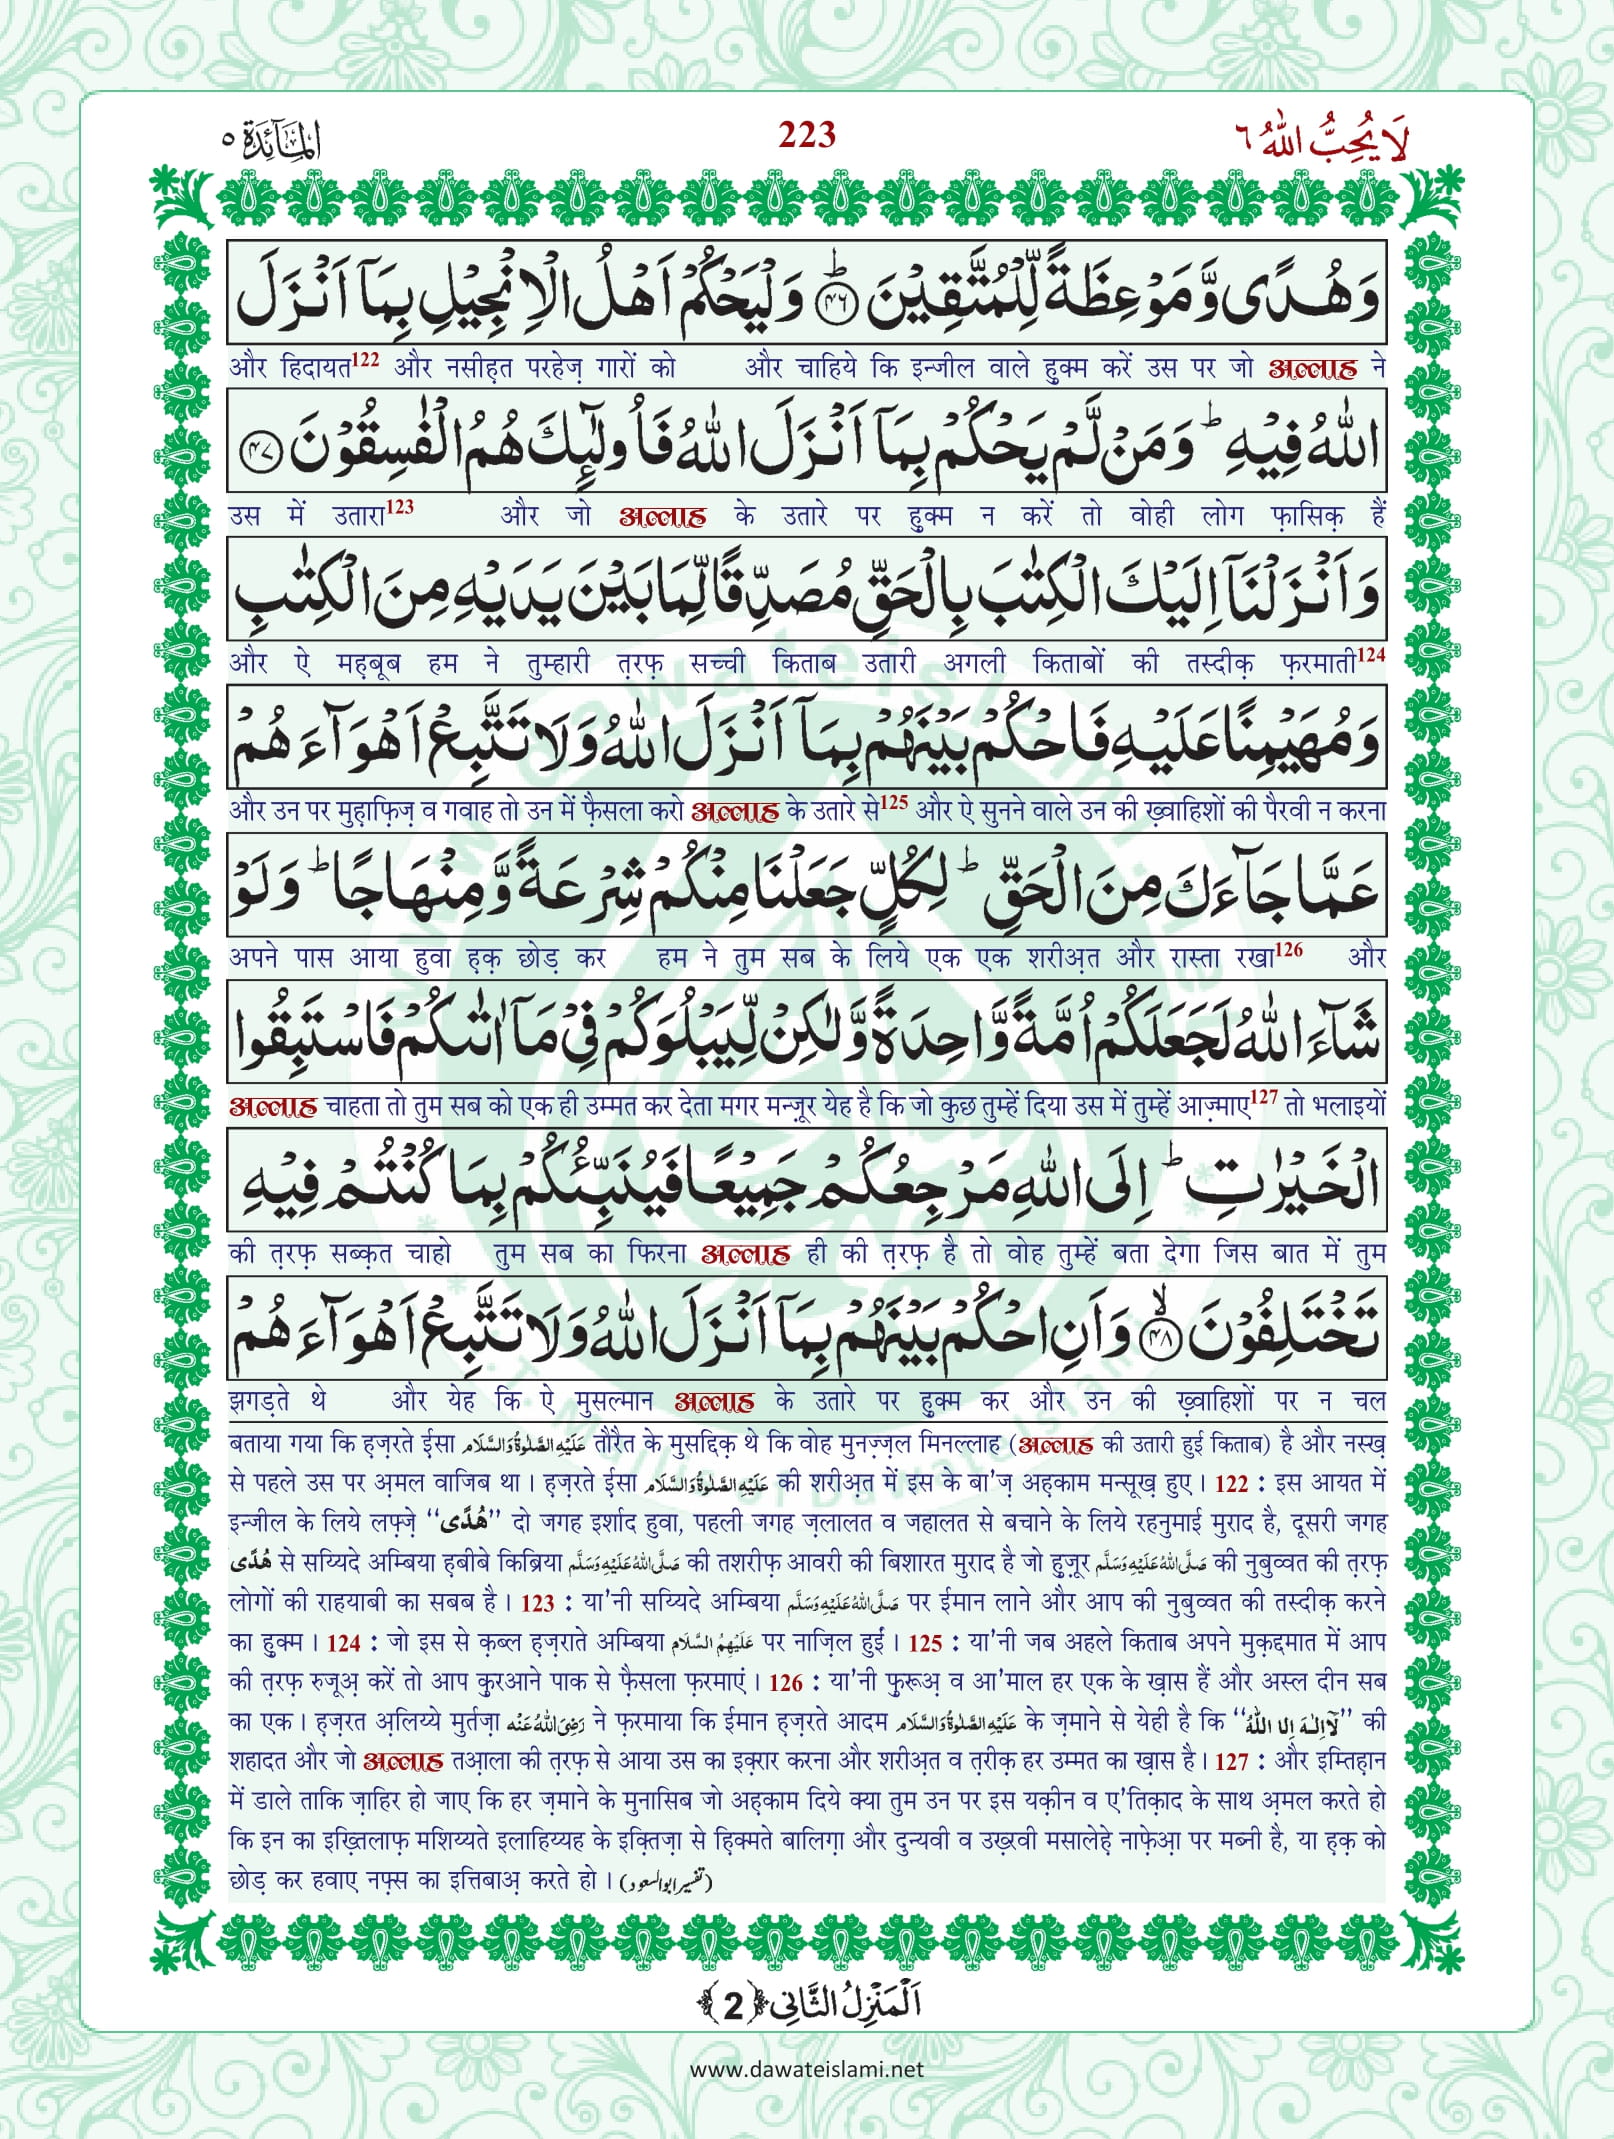 المآئدة ٥ 223 لَا يُحِبُّ اللّٰهُ ٦
وَهُدًى وَّمَوْعِظَةً لِّلْمُتَّقِيْنَ ؕ﴿۴۶﴾ وَلْيَحْكُمْ اَهْلُ الْاِنْجِيْلِ بِمَآ اَنْزَلَ
और हिदायत122 और नसीह़त परहेज़ गारों को और चाहिये कि इन्जील वाले हुक्म करें उस पर जो अल्लाह ने
اللّٰهُ فِيْهِ ؕ وَمَنْ لَّمْ يَحْكُمْ بِمَآ اَنْزَلَ اللّٰهُ فَاُولٰٓئِكَ هُمُ الْفٰسِقُوْنَ ﴿۴۷﴾
उस में उतारा123 और जो अल्लाह के उतारे पर हुक्म न करें तो वोही लोग फ़ासिक़ हैं
وَاَنْزَلْنَآ اِلَيْكَ الْكِتٰبَ بِالْحَقِّ مُصَدِّقًا لِّمَا بَيْنَ يَدَيْهِ مِنَ الْكِتٰبِ
और ऐ मह़बूब हम ने तुम्हारी त़रफ़ सच्ची किताब उतारी अगली किताबों की तस्दीक़ फ़रमाती124
وَمُهَيْمِنًا عَلَيْهِ فَاحْكُمْ بَيْنَهُمْ بِمَآ اَنْزَلَ اللّٰهُ وَلَا تَتَّبِعْ اَهْوَآءَهُمْ
और उन पर मुह़ाफ़िज़ व गवाह तो उन में फ़ैसला करो अल्लाह के उतारे से125 और ऐ सुनने वाले उन की ख़्वाहिशों की पैरवी न करना
عَمَّا جَآءَكَ مِنَ الْحَقِّ ؕ لِكُلٍّ جَعَلْنَا مِنْكُمْ شِرْعَةً وَّمِنْهَاجًا ؕ وَلَوْ
अपने पास आया हुवा ह़क़ छोड़ कर हम ने तुम सब के लिये एक एक शरीअ़त और रास्ता रखा126 और
شَآءَ اللّٰهُ لَجَعَلَكُمْ اُمَّةً وَّاحِدَةً وَّلٰكِنْ لِّيَبْلُوَكُمْ فِيْ مَآ اٰتٰىكُمْ فَاسْتَبِقُوا
अल्लाह चाहता तो तुम सब को एक ही उम्मत कर देता मगर मन्ज़ूर येह है कि जो कुछ तुम्हें दिया उस में तुम्हें आज़्माए127 तो भलाइयों
الْخَيْرٰتِ ؕ اِلَى اللّٰهِ مَرْجِعُكُمْ جَمِيْعًا فَيُنَبِّئُكُمْ بِمَا كُنْتُمْ فِيْهِ
की त़रफ़ सब्क़त चाहो तुम सब का फिरना अल्लाह ही की त़रफ़ है तो वोह तुम्हें बता देगा जिस बात में तुम
تَخْتَلِفُوْنَ ۙ﴿۴۸﴾ وَاَنِ احْكُمْ بَيْنَهُمْ بِمَآ اَنْزَلَ اللّٰهُ وَلَا تَتَّبِعْ اَهْوَآءَهُمْ
झगड़ते थे और येह कि ऐ मुसल्मान अल्लाह के उतारे पर हुक्म कर और उन की ख़्वाहिशों पर न चल
बताया गया कि ह़ज़रते ईसा عَلَيْهِ الصَّلٰوةُ وَالسَّلَام तौरैत के मुसद्दिक़ थे कि वोह मुनज़्ज़ल मिनल्लाह (अल्लाह की उतारी हुई किताब) है और नस्ख़
से पहले उस पर अ़मल वाजिब था । ह़ज़रते ईसा عَلَيْهِ الصَّلٰوةُ وَالسَّلَام की शरीअ़त में इस के बा'ज़ अह़काम मन्सूख़ हुए । 122 : इस आयत में
इन्जील के लिये लफ़्ज़े “هُدًى” दो जगह इर्शाद हुवा, पहली जगह ज़लालत व जहालत से बचाने के लिये रहनुमाई मुराद है, दूसरी जगह
هُدًى से सय्यिदे अम्बिया ह़बीबे किब्रिया صَلَّى اللهُ عَلَيْهِ وَسَلَّم की तशरीफ़ आवरी की बिशारत मुराद है जो हुज़ूर صَلَّى اللهُ عَلَيْهِ وَسَلَّم की नुबुव्वत की त़रफ़
लोगों की राहयाबी का सबब है । 123 : या'नी सय्यिदे अम्बिया صَلَّى اللهُ عَلَيْهِ وَسَلَّم पर ईमान लाने और आप की नुबुव्वत की तस्दीक़ करने
का हुक्म । 124 : जो इस से क़ब्ल ह़ज़राते अम्बिया عَلَيْهِمُ السَّلَام पर नाज़िल हुईं । 125 : या'नी जब अहले किताब अपने मुक़द्दमात में आप
की त़रफ़ रुजूअ़ करें तो आप क़ुरआने पाक से फ़ैसला फ़रमाएं । 126 : या'नी फ़ुरूअ़ व आ'माल हर एक के ख़ास हैं और अस्ल दीन सब
का एक । ह़ज़रत अ़लिय्ये मुर्तज़ा رَضِىَ اللهُ عَنْه ने फ़रमाया कि ईमान ह़ज़रते आदम عَلَيْهِ الصَّلٰوةُ وَالسَّلَام के ज़माने से येही है कि “لَآ اِلٰهَ اِلَّا اللّٰهُ” की
शहादत और जो अल्लाह तआ़ला की त़रफ़ से आया उस का इक़्रार करना और शरीअ़त व त़रीक़ हर उम्मत का ख़ास है । 127 : और इम्तिह़ान
में डाले ताकि ज़ाहिर हो जाए कि हर ज़माने के मुनासिब जो अह़काम दिये क्या तुम उन पर इस यक़ीन व ए'तिक़ाद के साथ अ़मल करते हो
कि इन का इख़्तिलाफ़ मशिय्यते इलाहिय्यह के इक़्तिज़ा से ह़िक्मते बालिग़ा और दुन्यवी व उख़्रवी मसालेह़े नाफ़ेआ़ पर मब्नी है, या ह़क़ को
छोड़ कर हवाए नफ़्स का इत्तिबाअ़ करते हो । (تفسیر ابو السعود)
اَلْمَنْزِلُ الثَّانِي ﴿2﴾
www.dawateislami.net